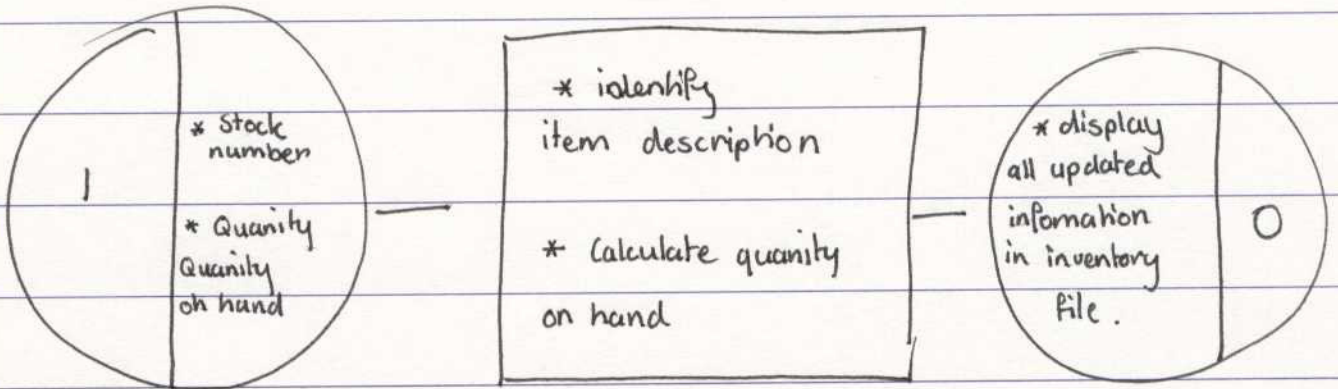 I
* Stock
number
* Quanity
Quanity
on hand
* identify
item description
* Calculate quanity
on hand
* display
all updated
infomation
in inventory
file.
O